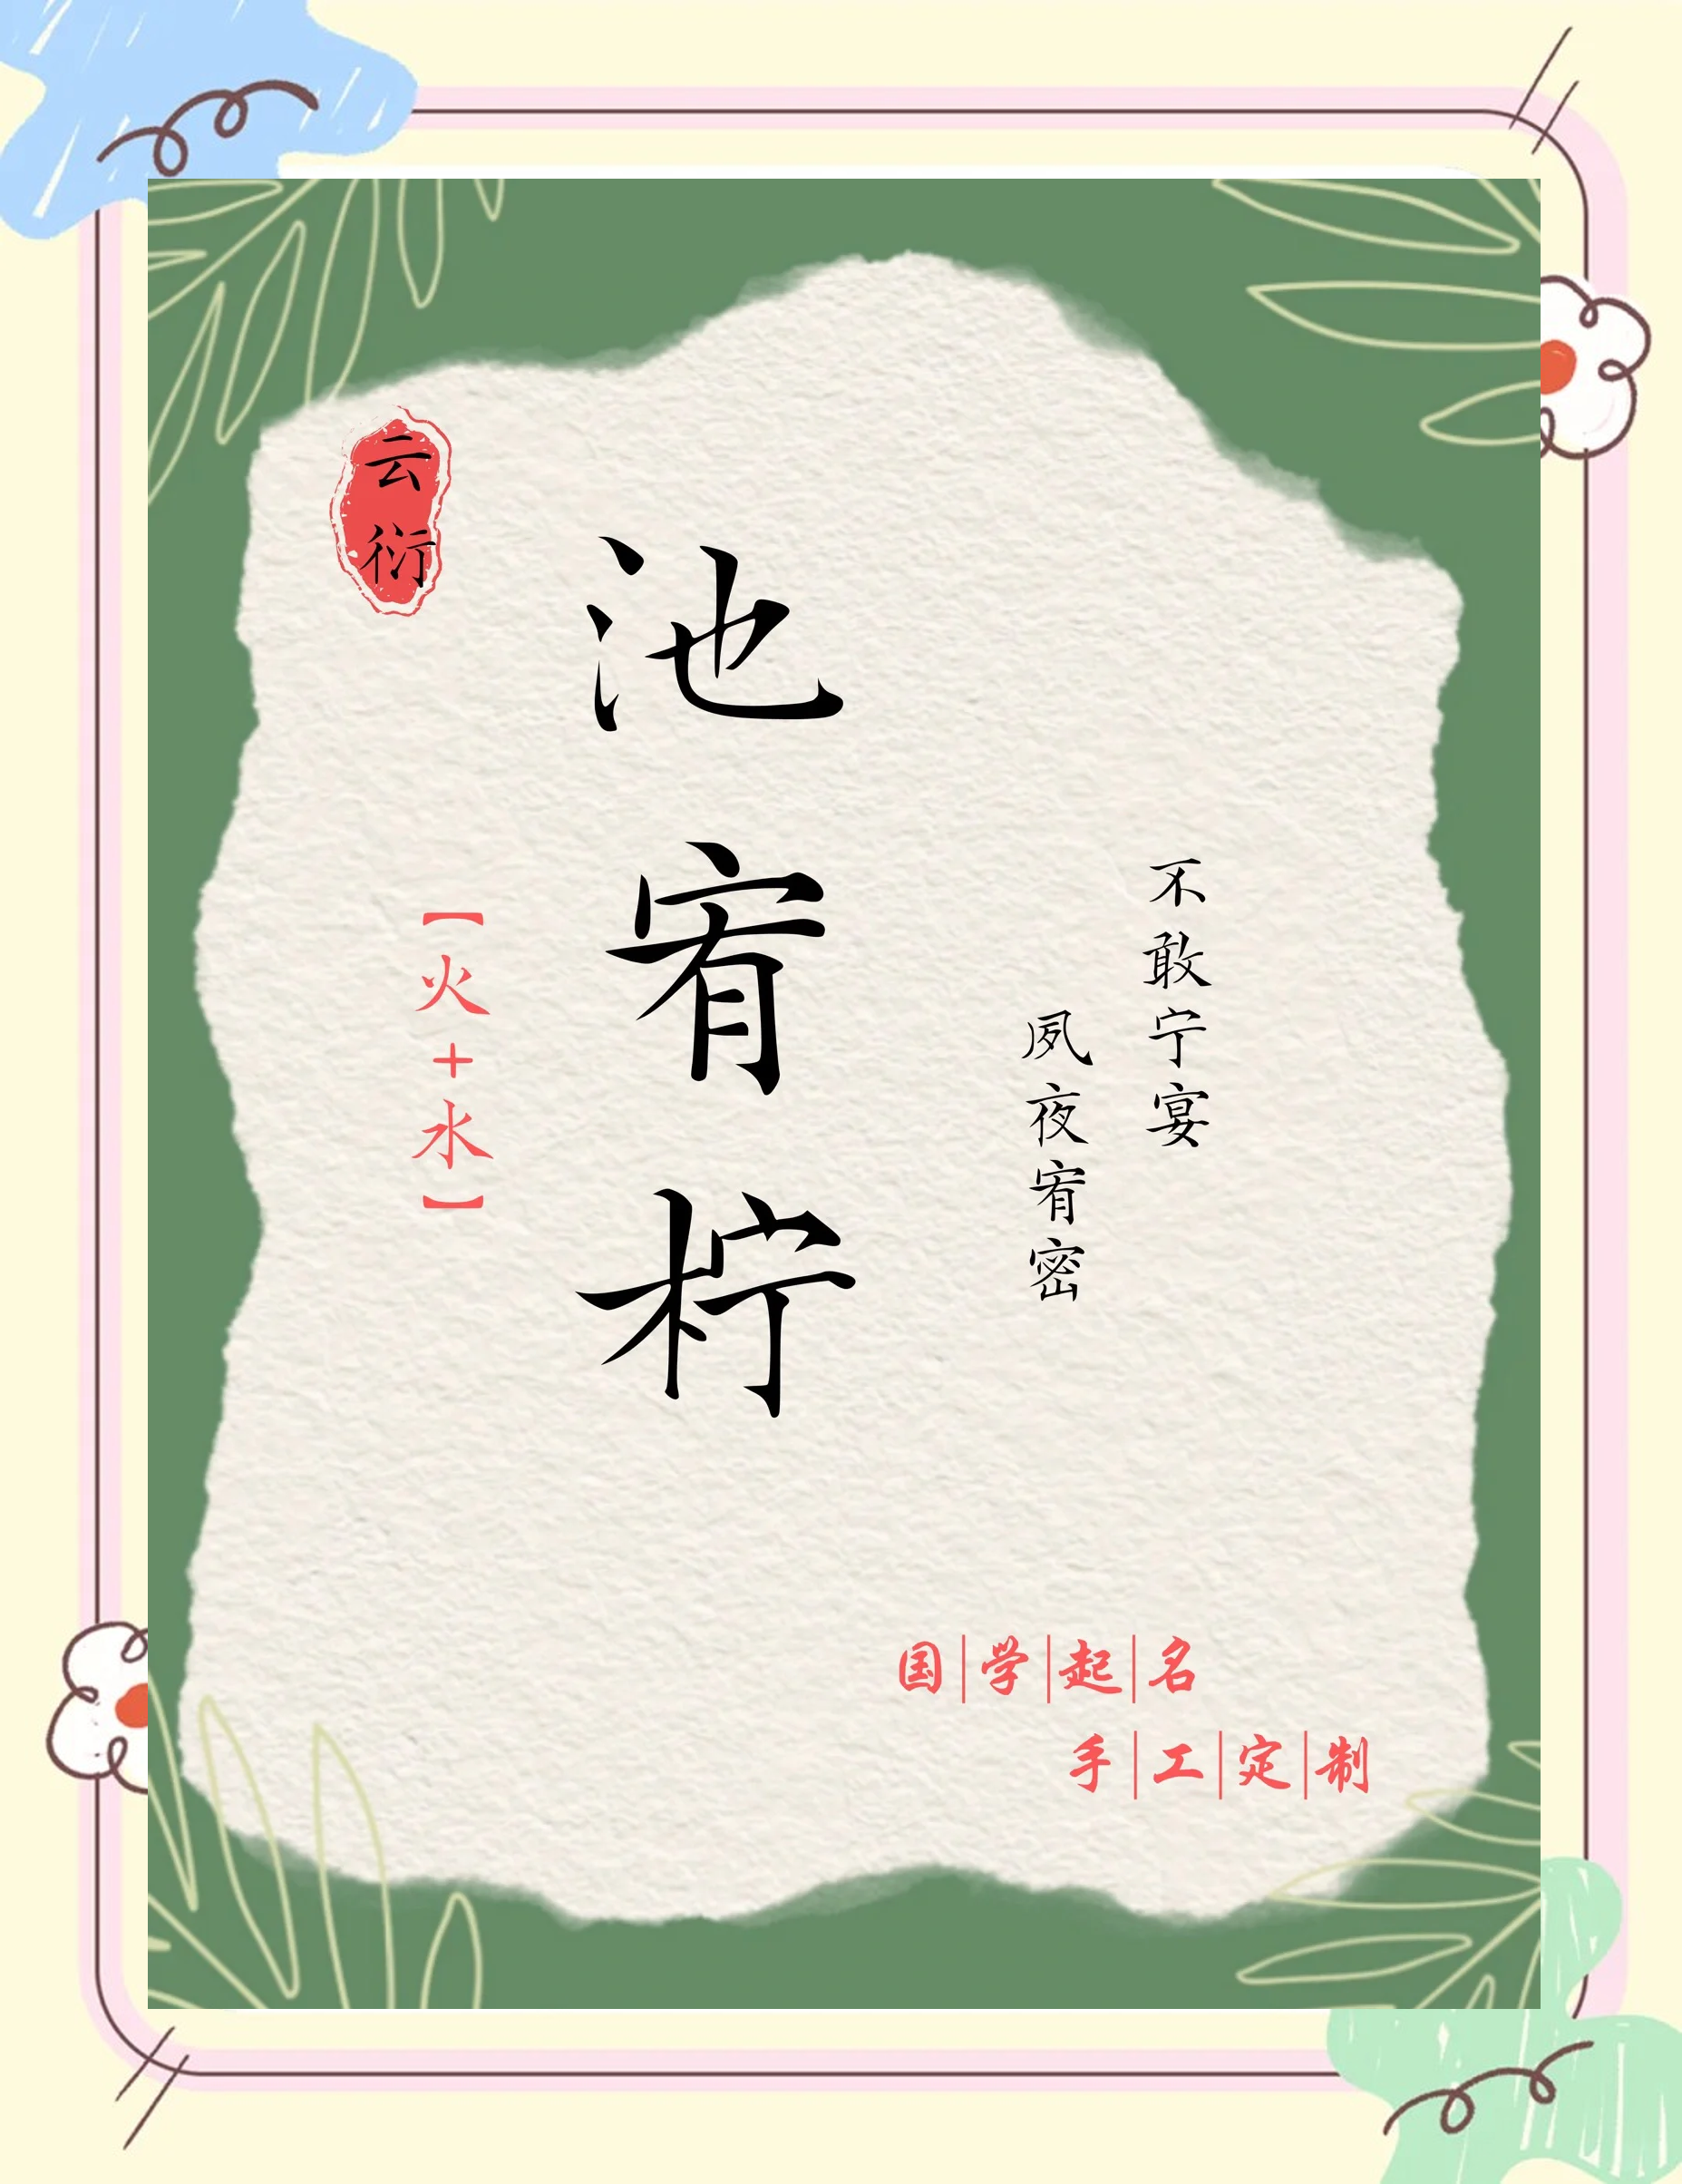 云衍
池宥柠
【火+水】
不敢宁宴
夙夜宥密
国|学|起|名
手|工|定|制